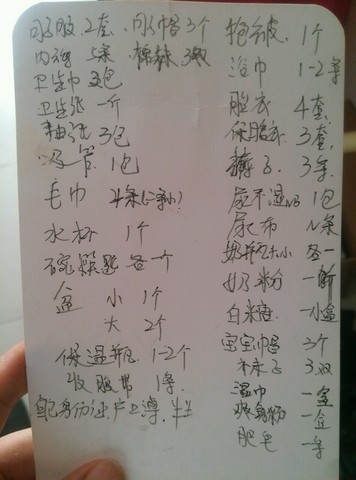 内裤 5条 棉袜 3双
卫生巾 3包
卫生纸 一个
抽纸 3包
吸管 1包
毛巾 4条
水杯 1个
碗 匙 各一个
盆 小 1个
大 2个
保温瓶 1-2个
收腹带 1条
身份证,户卫薄
抱被 1个
浴巾 1-2条
胎衣 4套
保胎衣 3套
裤子 3条
尿不湿 1包
尿布 N条
奶瓶大小 各一
奶粉 一
白米糖 一小盒
宝宝帽 3个
袜子 3双
湿巾 一盒
爽身粉 一盒
肥皂 一